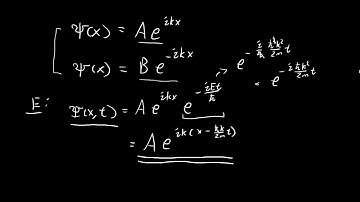 ψ(x) = A e^{ikx}
ψ(x) = B e^{-ikx}
→ e^{-\frac{i}{ħ} \frac{ħ²k²}{2m} t}
= e^{-i \frac{ħk²}{2m} t}
E: Ψ(x,t) = A e^{ikx} e^{-\frac{iEt}{ħ}}
= A e^{ik(x - \frac{ħk}{2m} t)}